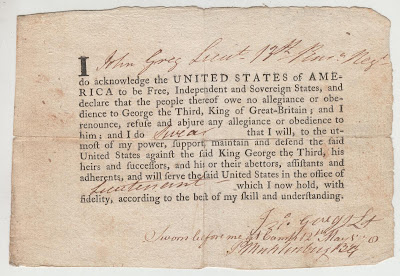 I John Greg Lieut. 12th Pen.a Regt
do acknowledge the UNITED STATES of AME-
RICA to be Free, Independent and Sovereign States, and
declare that the people thereof owe no allegiance or obe-
dience to George the Third, King of Great-Britain; and I
renounce, refuse and abjure any allegiance or obedience to
him; and I do Swear that I will, to the ut-
most of my power, support, maintain and defend the said
United States against the said King George the Third, his
heirs and successors, and his or their abettors, assistants and
adherents, and will serve the said United States in the office of
Lieutenant which I now hold, with
fidelity, according to the best of my skill and understanding.
Gregg Lt
Sworn before me at Camp 12th May